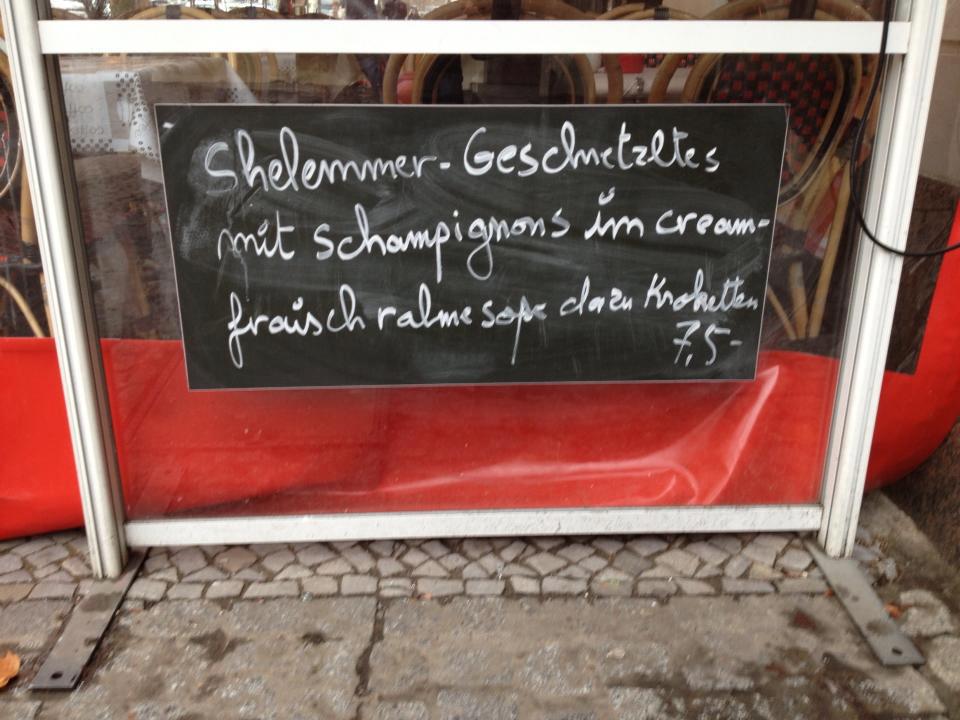 Shelemmer-Geschnetzltes
mit schampignons im cream-
fraisch rahmesoße dazu Kroketten
7,5-